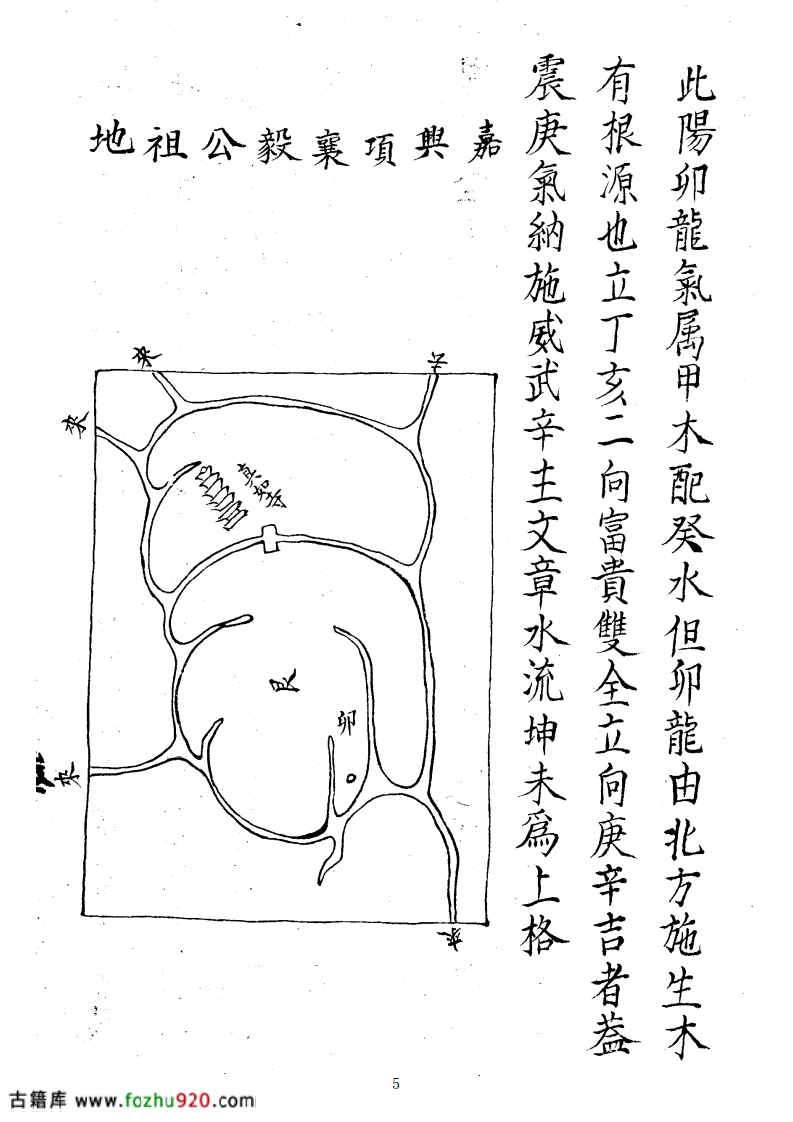 此陽卯龍氣属甲木配癸水但卯龍由北方施生木
有根源也立丁亥二向富貴雙全立向庚辛吉者葢
震庚氣納施威武辛主文章水流坤未爲上格
嘉興項襄毅公祖地
來
來
真如寺
艮
卯
來
5
古籍库 www.fozhu920.com